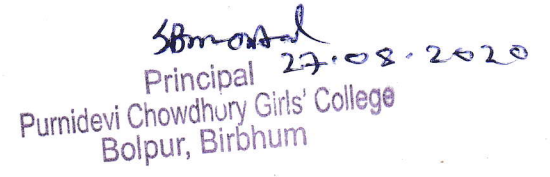 SBmondal
27.08.2020
Principal
Purnidevi Chowdhury Girls' College
Bolpur, Birbhum